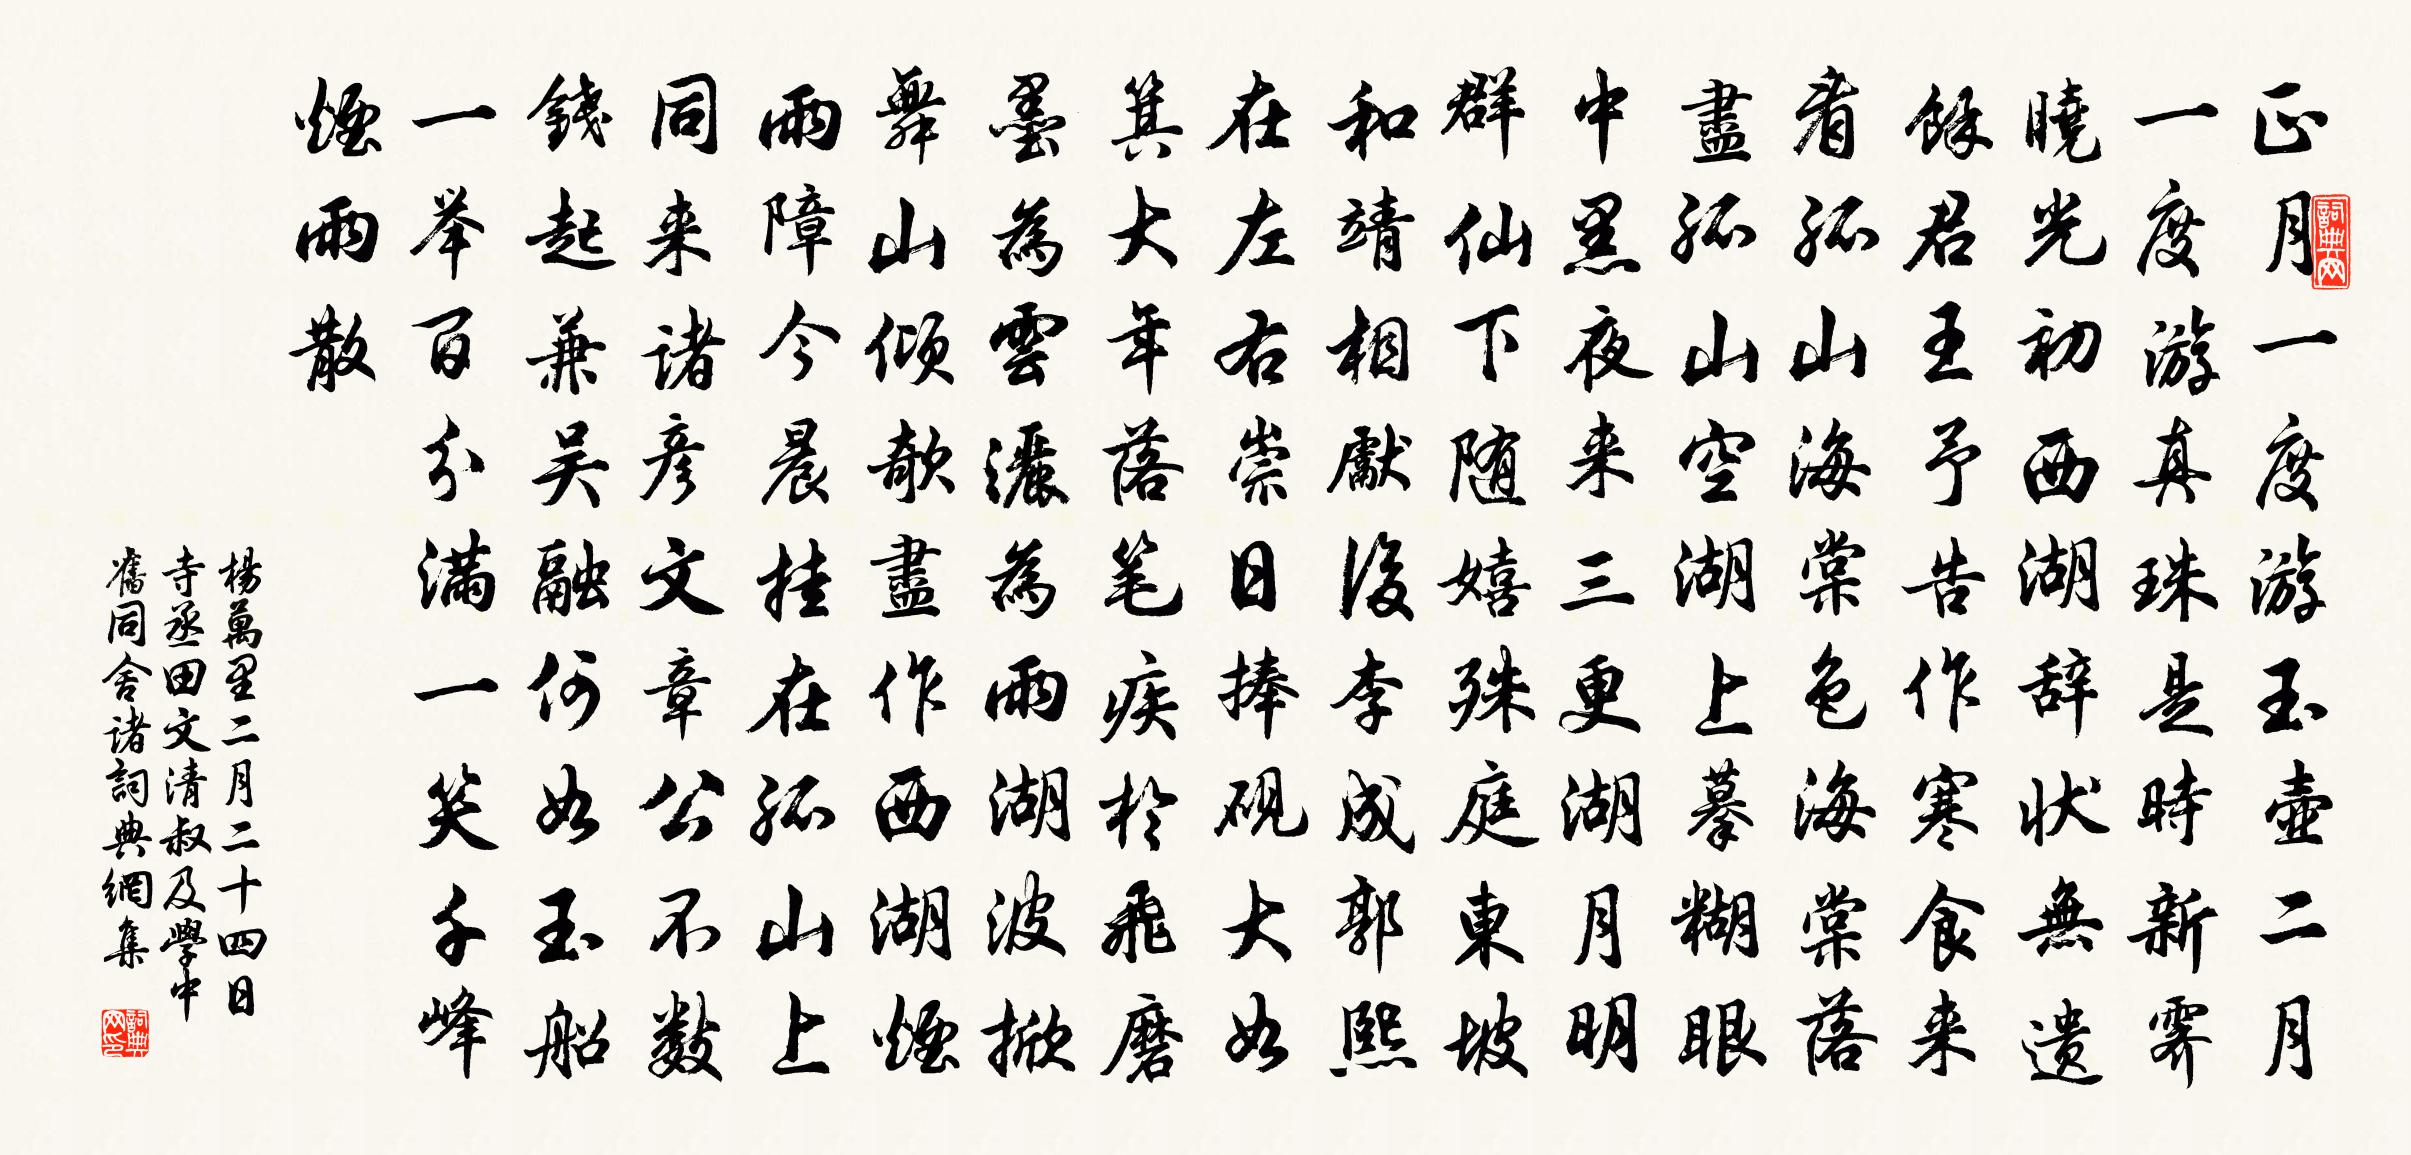 正月一度游玉壺二月
一度游真珠是時新霽
曉光初西湖辞狀無遗
餘君王予告作寒食来
看孤山海棠色海棠落
盡孤山空湖上摹糊眼
中黑夜来三更湖月明
群仙下随嬉殊庭東坡
和靖相獻後李成郭熙
在左右崇日捧硯大如
箕大年落笔疾於飛磨
墨為雲灑為雨湖波掀
舞山傾欹盡作西湖煙
雨障今晨挂在孤山上
同来诸彦文章公不数
錢起兼吴融何如玉船
一举百分满一笑千峰
煙雨散
楊萬里二月二十四日
寺丞田文清叔及學中
舊同舍诸詞典網集
詞典网
詞典网印